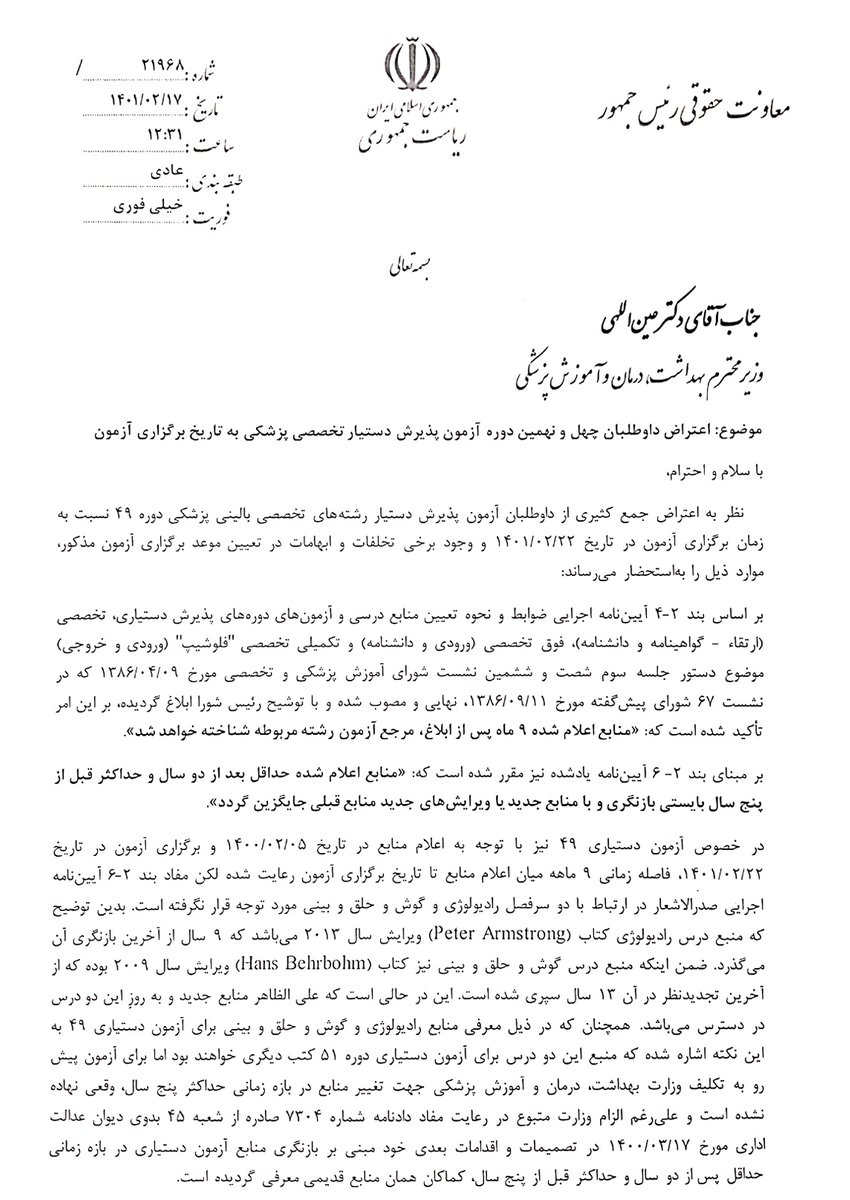 معاونت حقوقی رئیس جمهور
جمهوری اسلامی ایران
ریاست جمهوری
شماره : ۲۱۹۶۸ /
تاریخ : ۱۴۰۱/۰۲/۱۷
ساعت : ۱۲:۳۱
طبقه بندی : عادی
فوریت : خیلی فوری
بسمه تعالی
جناب آقای دکتر عین اللهی
وزیر محترم بهداشت، درمان و آموزش پزشکی
موضوع: اعتراض داوطلبان چهل و نهمین دوره آزمون پذیرش دستیار تخصصی پزشکی به تاریخ برگزاری آزمون
با سلام و احترام،
نظر به اعتراض جمع کثیری از داوطلبان آزمون پذیرش دستیار رشته‌های تخصصی بالینی پزشکی دوره ۴۹ نسبت به
زمان برگزاری آزمون در تاریخ ۱۴۰۱/۰۲/۲۲ و وجود برخی تخلفات و ابهامات در تعیین موعد برگزاری آزمون مذکور،
موارد ذیل را به‌استحضار می‌رساند:
بر اساس بند ۲-۴ آیین‌نامه اجرایی ضوابط و نحوه تعیین منابع درسی و آزمون‌های دوره‌های پذیرش دستیاری، تخصصی
(ارتقاء - گواهینامه و دانشنامه)، فوق تخصصی (ورودی و دانشنامه) و تکمیلی تخصصی "فلوشیپ" (ورودی و خروجی)
موضوع دستور جلسه سوم شصت و ششمین نشست شورای آموزش پزشکی و تخصصی مورخ ۱۳۸۶/۰۴/۰۹ که در
نشست ۶۷ شورای پیش‌گفته مورخ ۱۳۸۶/۰۹/۱۱، نهایی و مصوب شده و با توشیح رئیس شورا ابلاغ گردیده، بر این امر
تأکید شده است که: «منابع اعلام شده ۹ ماه پس از ابلاغ، مرجع آزمون رشته مربوطه شناخته خواهد شد».
بر مبنای بند ۲- ۶ آیین‌نامه یادشده نیز مقرر شده است که: «منابع اعلام شده حداقل بعد از دو سال و حداکثر قبل از
پنج سال بایستی بازنگری و با منابع جدید یا ویرایش‌های جدید منابع قبلی جایگزین گردد».
در خصوص آزمون دستیاری ۴۹ نیز با توجه به اعلام منابع در تاریخ ۱۴۰۰/۰۲/۰۵ و برگزاری آزمون در تاریخ
۱۴۰۱/۰۲/۲۲، فاصله زمانی ۹ ماهه میان اعلام منابع تا تاریخ برگزاری آزمون رعایت شده لکن مفاد بند ۲-۶ آیین‌نامه
اجرایی صدرالاشعار در ارتباط با دو سرفصل رادیولوژی و گوش و حلق و بینی مورد توجه قرار نگرفته است. بدین توضیح
که منبع درس رادیولوژی کتاب (Peter Armstrong) ویرایش سال ۲۰۱۳ می‌باشد که ۹ سال از آخرین بازنگری آن
می‌گذرد. ضمن اینکه منبع درس گوش و حلق و بینی نیز کتاب (Hans Behrbohm) ویرایش سال ۲۰۰۹ بوده که از
آخرین تجدیدنظر در آن ۱۳ سال سپری شده است. این در حالی است که علی الظاهر منابع جدید و به روز این دو درس
در دسترس می‌باشد. همچنان که در ذیل معرفی منابع رادیولوژی و گوش و حلق و بینی برای آزمون دستیاری ۴۹ به
این نکته اشاره شده که منبع این دو درس برای آزمون دستیاری دوره ۵۱ کتب دیگری خواهند بود اما برای آزمون پیش
رو به تکلیف وزارت بهداشت، درمان و آموزش پزشکی جهت تغییر منابع در بازه زمانی حداکثر پنج سال، وقعی نهاده
نشده است و علی‌رغم الزام وزارت متبوع در رعایت مفاد دادنامه شماره ۷۳۰۴ صادره از شعبه ۴۵ بدوی دیوان عدالت
اداری مورخ ۱۴۰۰/۰۳/۱۷ در تصمیمات و اقدامات بعدی خود مبنی بر بازنگری منابع آزمون دستیاری در بازه زمانی
حداقل پس از دو سال و حداکثر قبل از پنج سال، کماکان همان منابع قدیمی معرفی گردیده است.